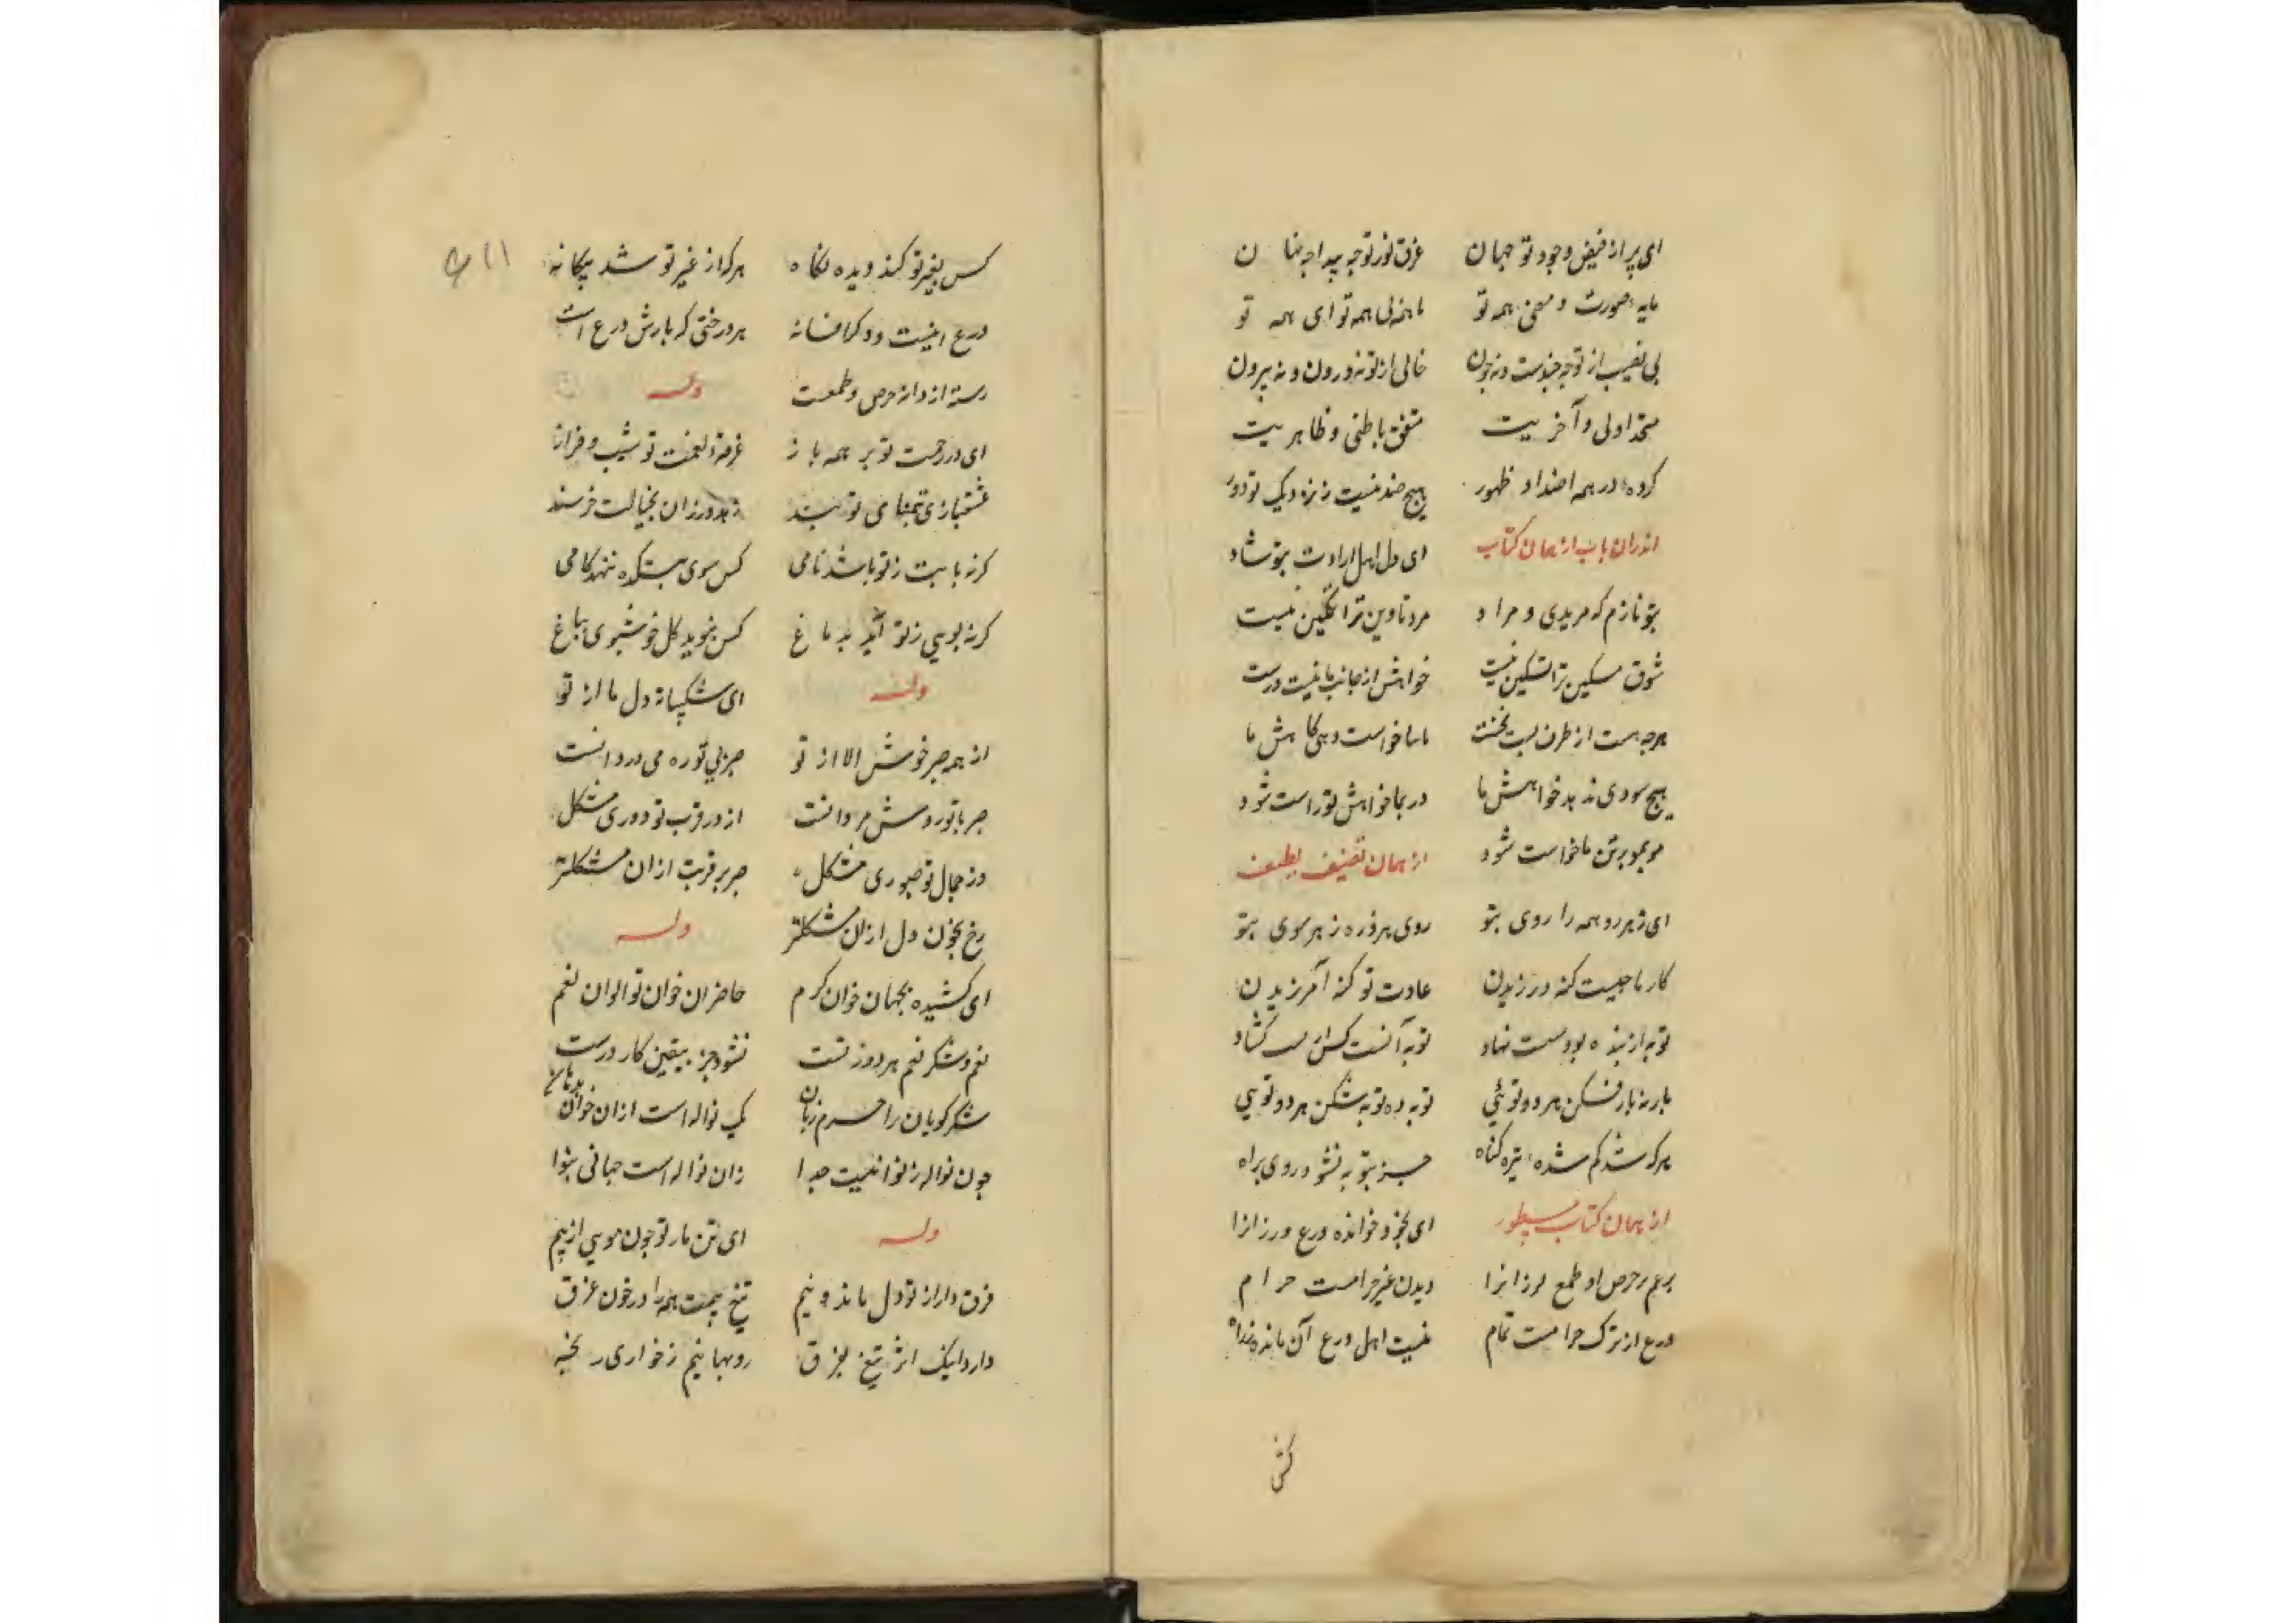 ای پر از فیض وجود تو جهان غرق نور تو چه پیدا چه نهان
مایه صورت و معنی همه تو با همه بی همه تو ای همه تو
بی نصیب از تو چه چندست و نه چون خالی از تو نه درون و نه بیرون
متحد اولی و آخریت متفق باطنی و ظاهریت
کرده در همه اضداد ظهور هیچ ضد نیست ز نزدیک تو دور
اندران باب از همان کتاب ای دل اهل ارادت بتو شاد
بتو نازم که مریدی و مراد مرد تا وین ترا تمکین نیست
شوق مسکین ترا تسکین نیست خواهش از جانب ما نیست درست
هرچه هست از طرف تست نخست ما بنا خواست دهی کاهش ما
هیچ سودی ندهد خواهش ما ور بما خواهش تو راست شود
مو بمو بر تن ما خواست شود از همان تصنیف لطیف
ای ز هر رو همه را روی بتو روی هر ذره ز هر سوی بتو
کار ما چیست کنه ورزیدن عادت تو کنه آمرزیدن
توبه از بنده بود سست نهاد توبه آنست کش از لب کشاد
بار نه بار فکن هر دو توئی توبه ده توبه شکن هر دو تویی
هر که شد کم شده تیره کناه جز بتو به نشود روی براه
از همان کتاب مسطور ای بخود خوانده ورع ورزانرا
برهم بر حرص او طمع لرزانرا دیدن غیر حرامست حرام
ورع از ترک حرامست تمام نیست اهل ورع آن مانده نداه
کش
کس بغیر تو کند دیده نکاه هر که از غیر تو شد بیکانه
ورع اینست و دکر افسانه هر درختی که بارش ورع است
رسته از دانه حرص و طمعست وله
ای در رحمت تو بر همه باز غرقه نعمت تو شیب و فراز
عشقبازی بتمنای تو بند زهد ورزان بخیالت خرسند
کر نه با بت ز تو باشد نامی کس سوی بتکده ننهد کامی
کر نه بویی ز تو آید بدماغ کس نبوید کل خوشبوی بباغ
وله ای شکیبا نه دل ما از تو
از همه صبر خوش الا از تو صبر بی تو ره می دردانست
صبر با تو روش مردانست از در قرب تو دوری مشکل
وز جمال تو صبوری مشکل صبر بر قربت ازان مشکلتر
رخ بخون دل ازان مشکلتر وله
ای کشیده بجهان خوان کرم حاضران خوان تو الوان نعم
نعم و شکر نعم هر دو ز تست نشود جز بیقین کار درست
شکر کویان را حرم زبان یک نواله است ازان خوان بدهان
چون نواله ز نوا نیست جدا زان نواله است جهانی بنوا
وله ای تن مار تو چون مویی از بیم
فرق دار از تو دل ما بدو نیم تیغ بیمت همه را در خون غرق
دارد اینک اثر تیغ بفرق رو بهانیم ز خواری رنجه